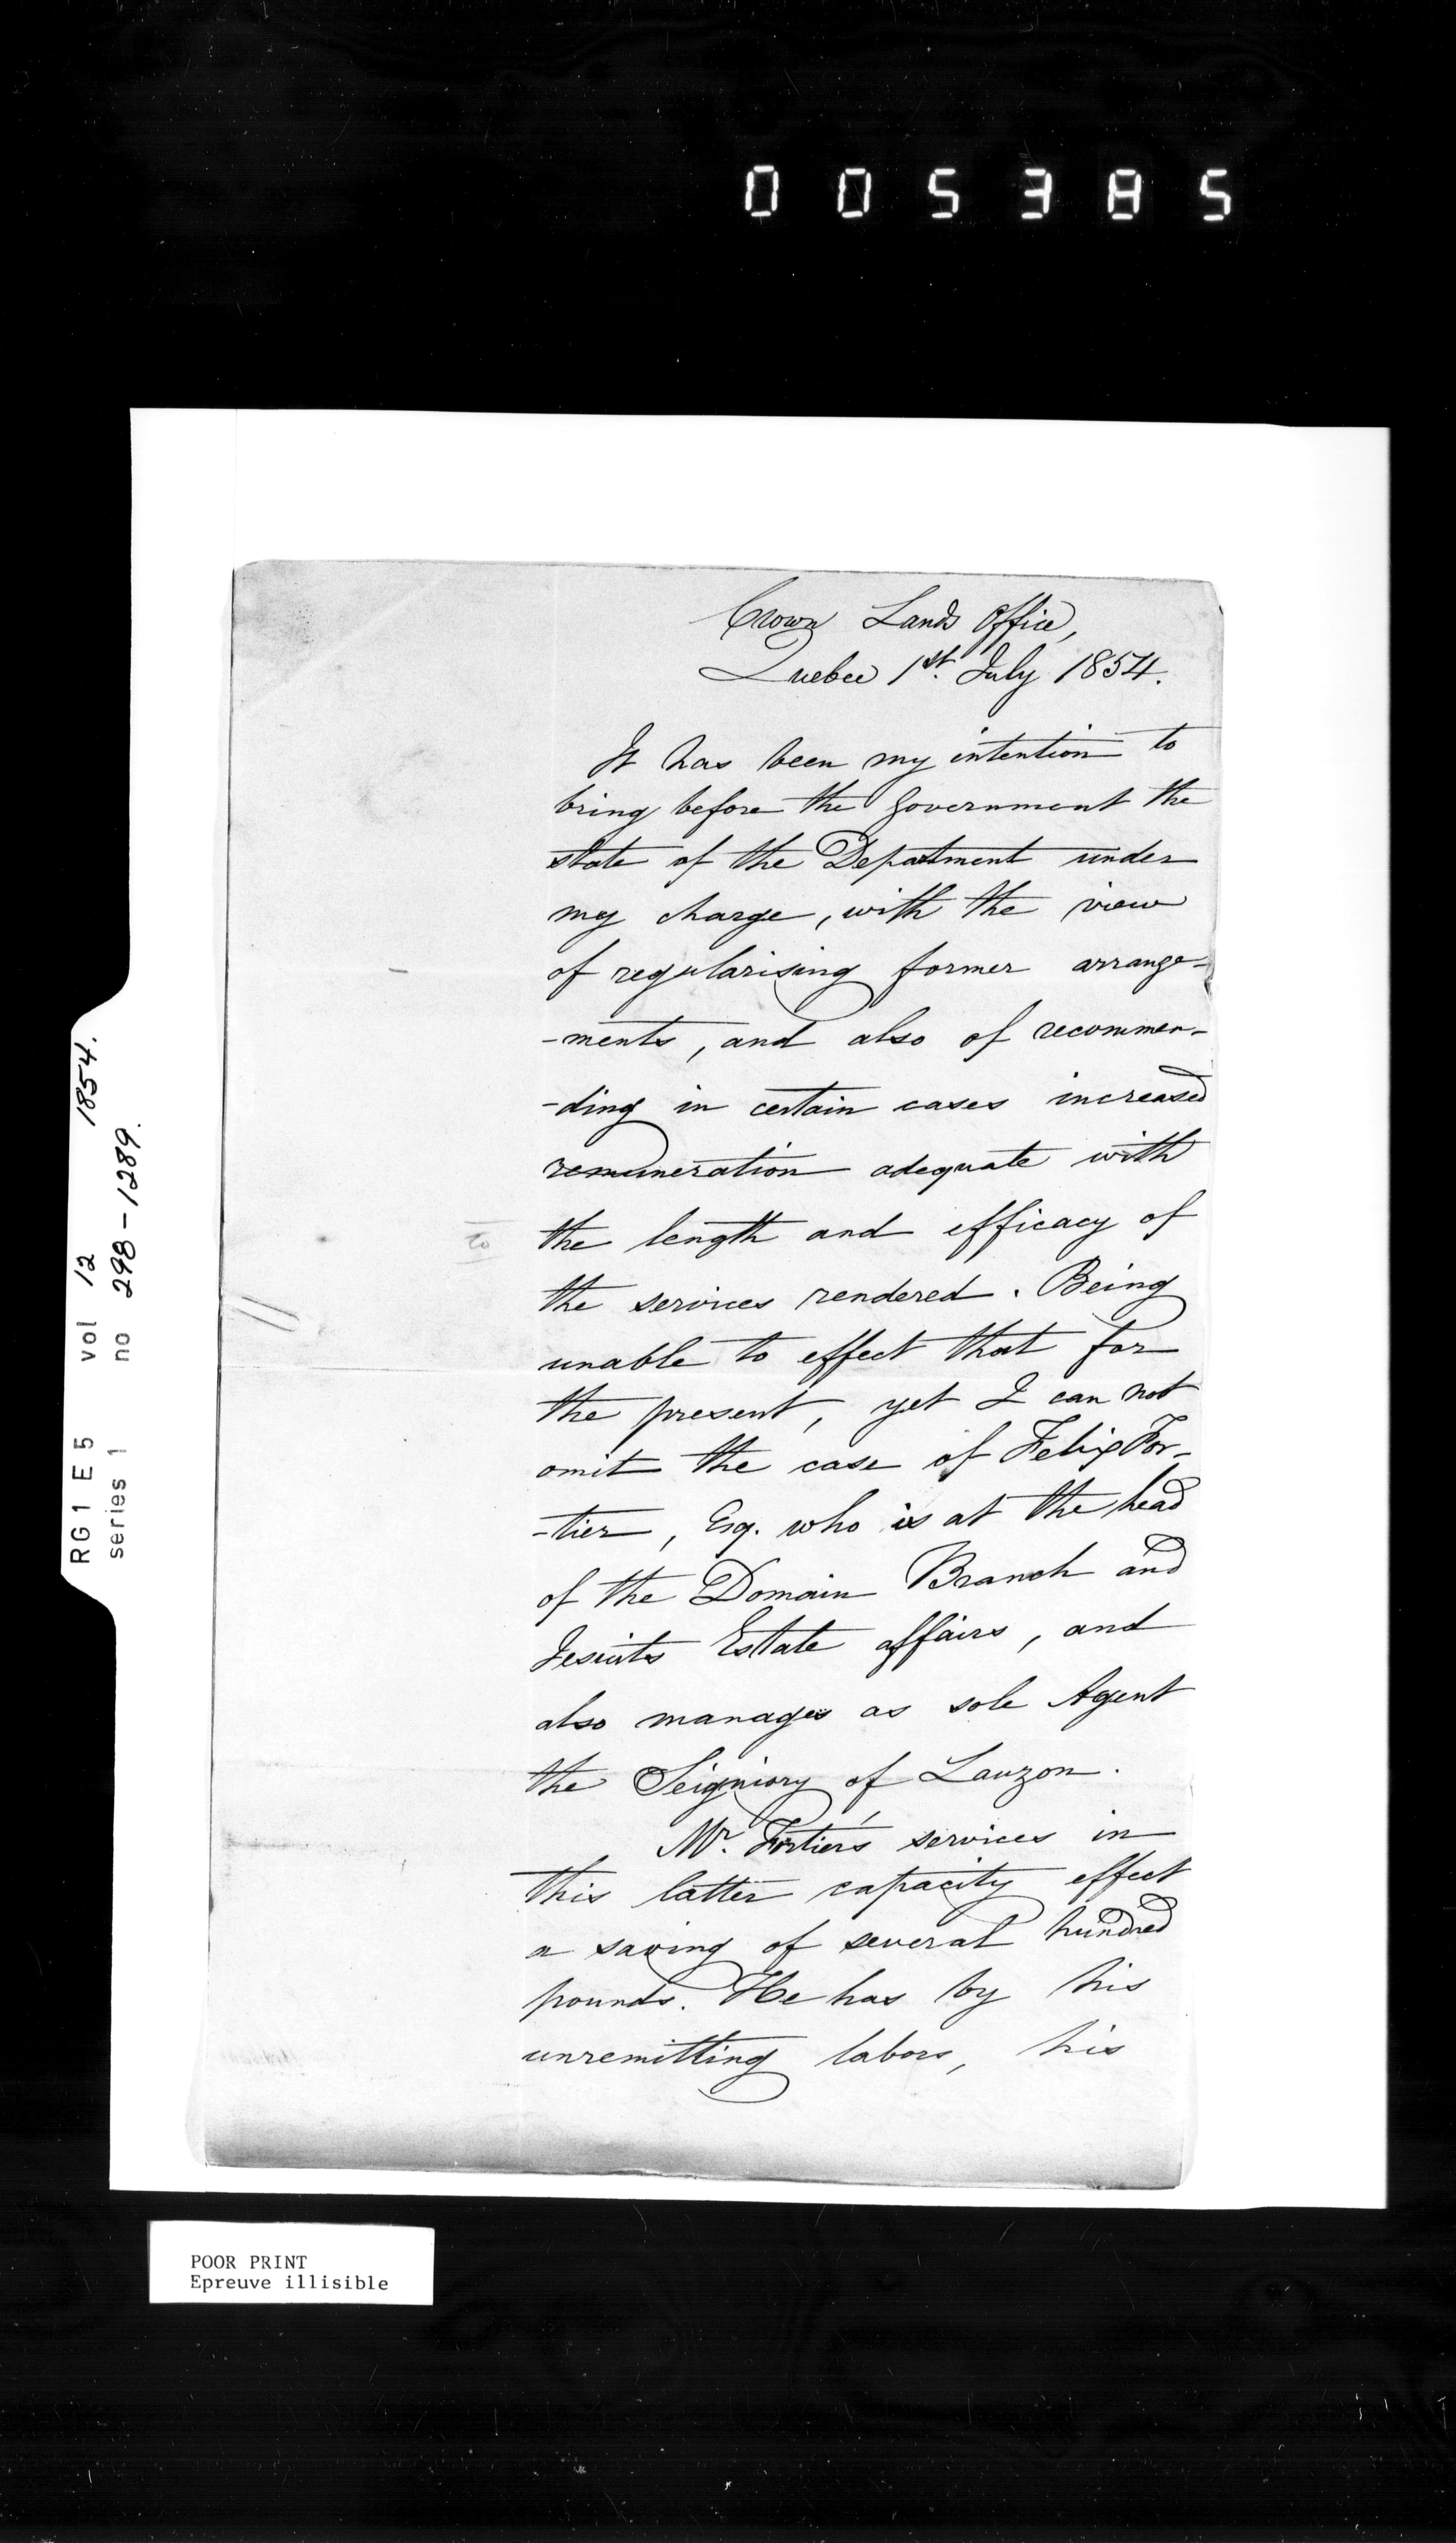 005385
Crown Lands Office,
Quebec 1st. July 1854.
It has been my intention to
bring before the Government the
state of the Department under
my charge, with the view
of regularising former arrange-
-ments, and also of recommen-
-ding in certain cases increased
remuneration adequate with
to
the length and efficacy of
the services rendered. Being
unable to effect that for
the present, yet I can not
omit the case of Felix For-
-tier, Esq. who is at the head
of the Domain Branch and
Jesuits Estate affairs, and
also manages as sole Agent
the Seigniory of Lauzon.
Mr. Fortier's services in
this latter capacity effect
a saving of several hundred
pounds. He has by his
unremitting labors, his
RG1 E5 vol 12 1854.
series 1 no 298-1289.
POOR PRINT
Epreuve illisible